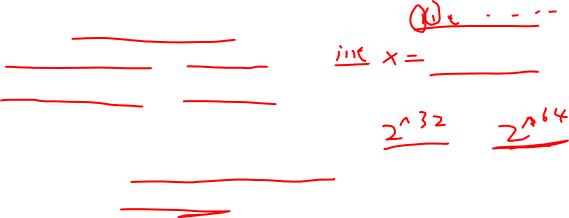 int x =
2^32 2^64